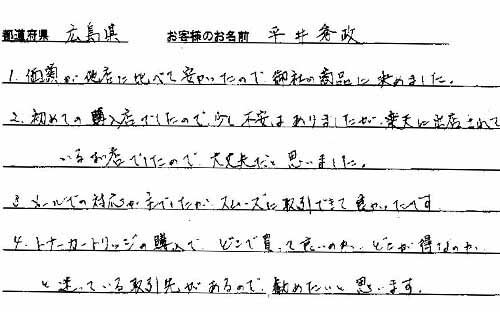 都道府県 広島県 お客様のお名前 平井秀政
1. 価格が他店に比べて安かったので御社の商品に決めました。
2. 初めての購入店でしたので少し不安はありましたが、楽天に出店されて
いるお店でしたので、大丈夫だと思いました。
3. メールでの対応が主でしたが、スムーズに取引できて良かったです
4. トナーカートリッジの購入で、どこで買って良いのか、どこが得なのか
と迷っている取引先があるので、勧めたいと思います。